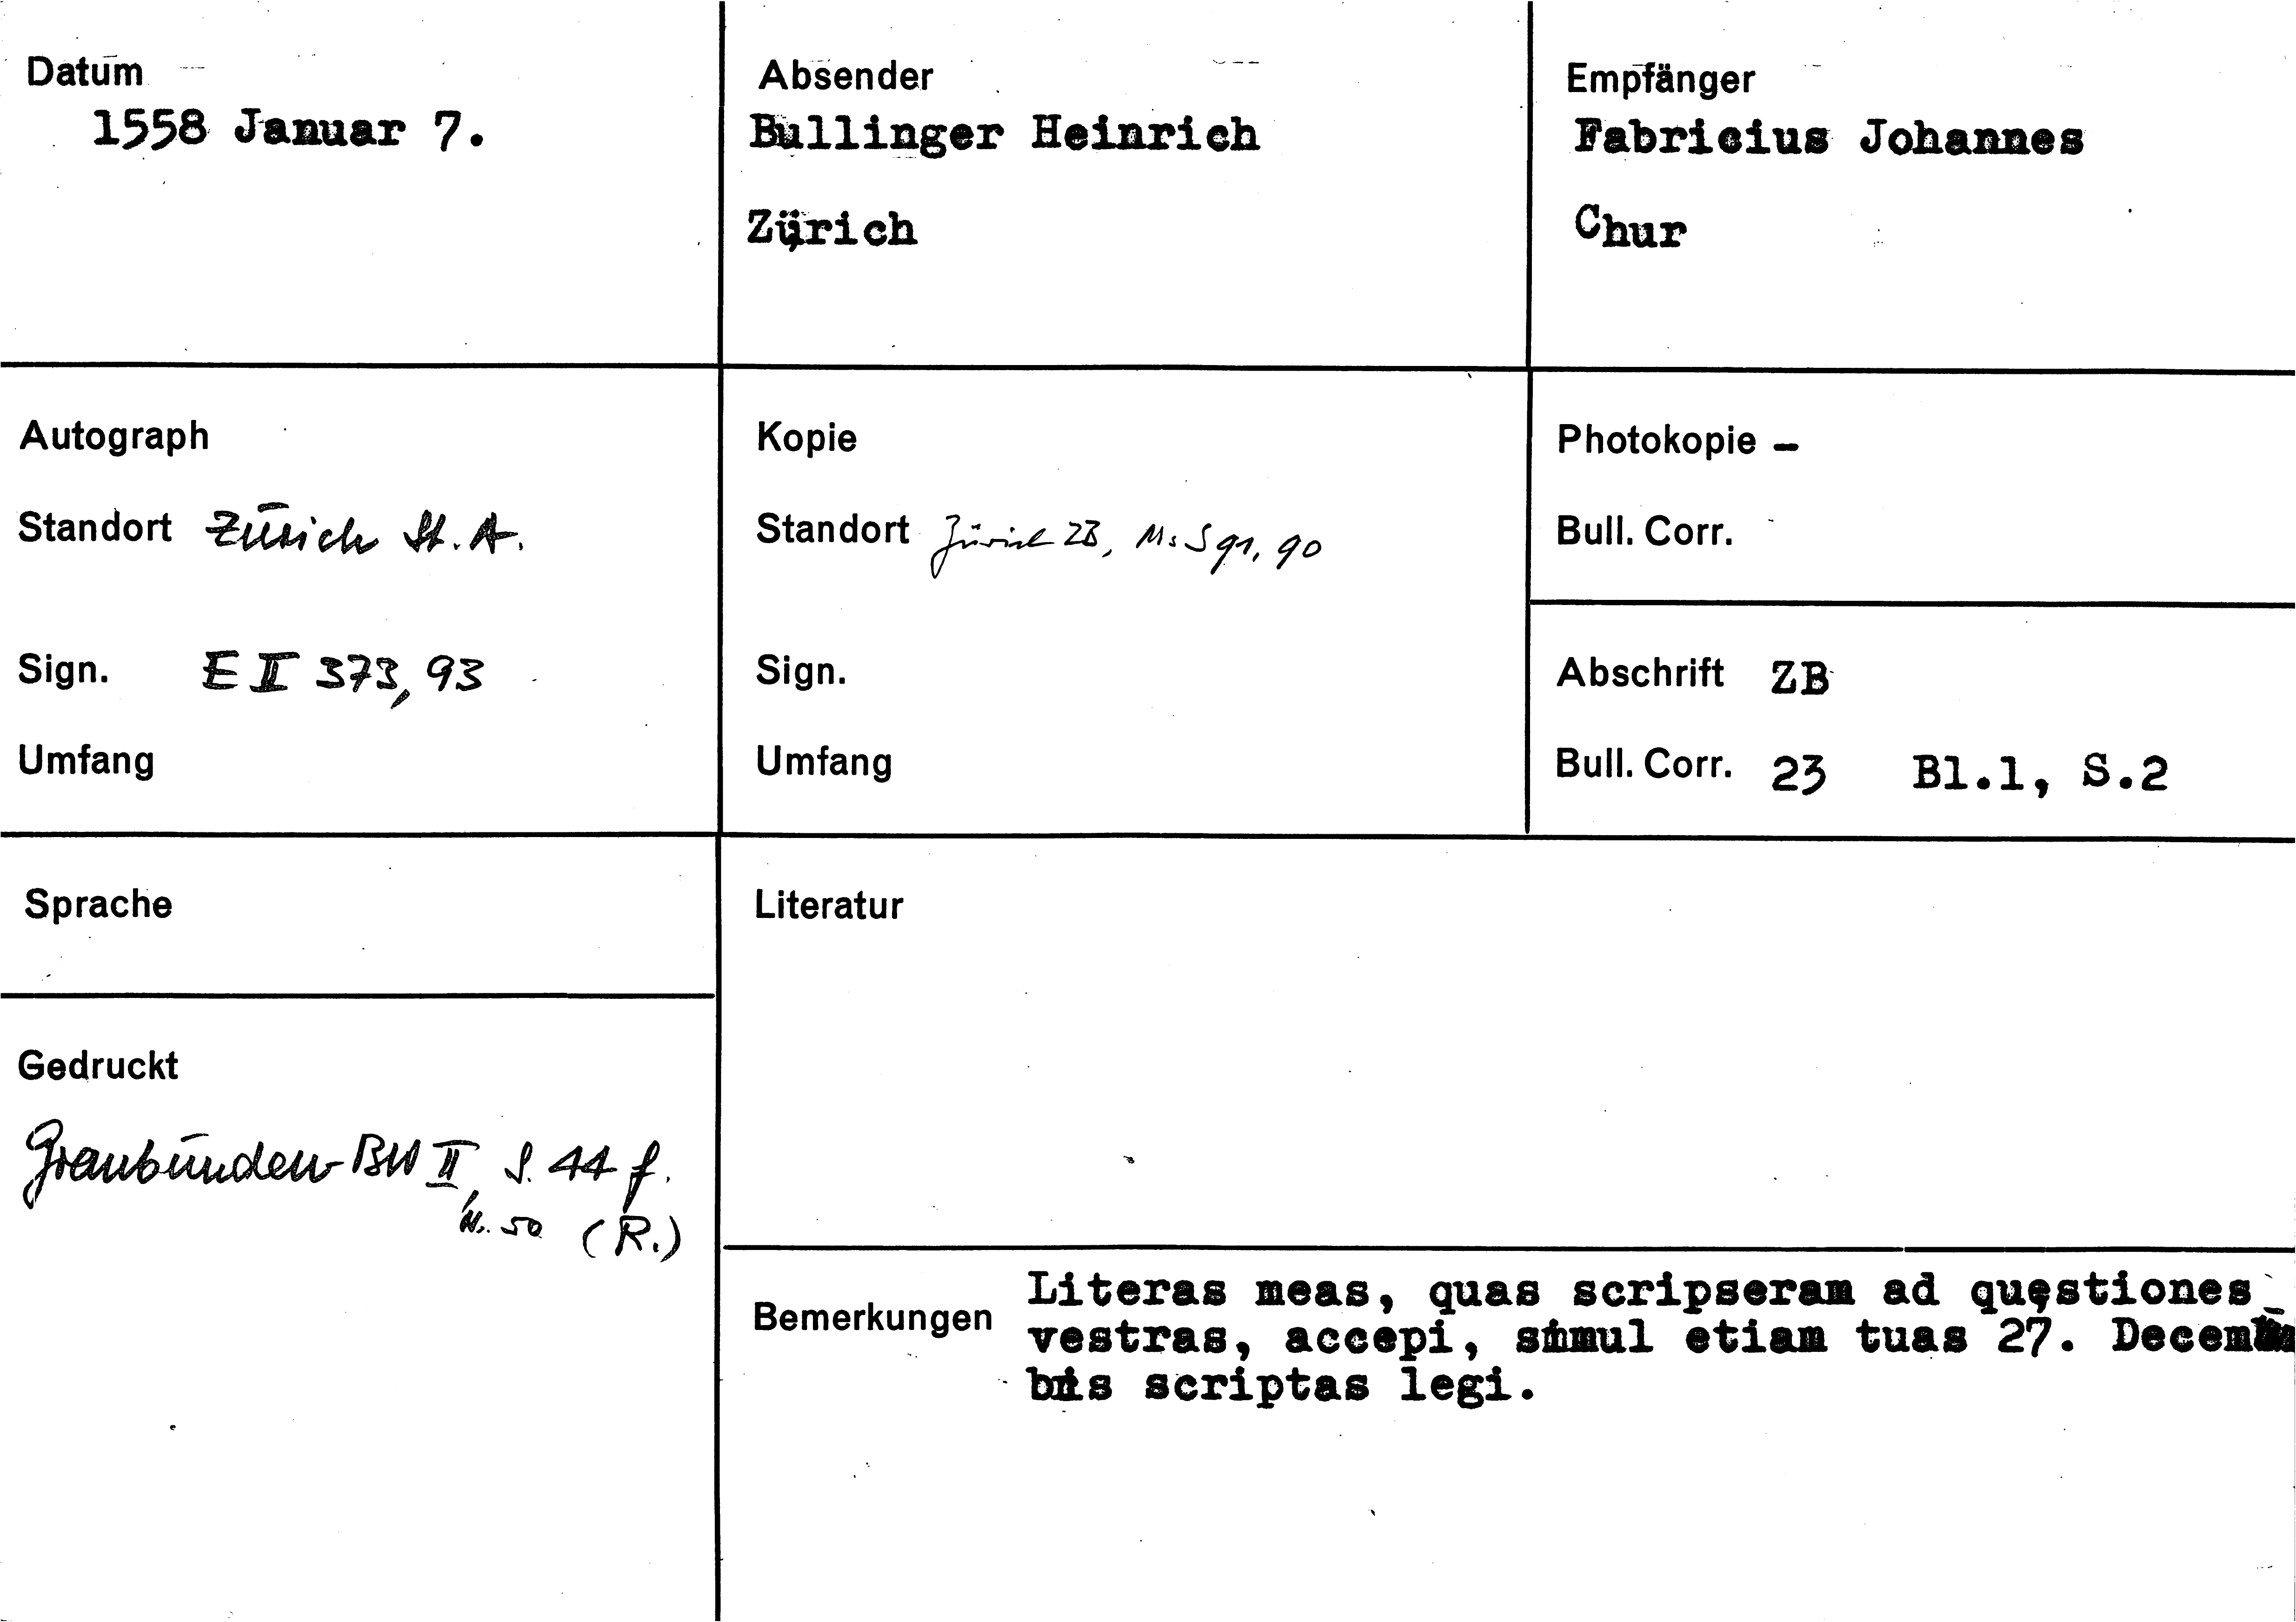 Datum
1558 Januar 7.
Absender
Bullinger Heinrich
Zürich
Empfänger
Fabricius Johannes
Chur
Autograph
Standort Zürich St. A.
Sign. E II 373, 93
Umfang
Kopie
Standort Zürich ZB, Ms S 91, 90
Sign.
Umfang
Photokopie –
Bull. Corr.
Abschrift ZB
Bull. Corr. 23 Bl.1, S.2
Sprache
Gedruckt
Graubünden BW II, S. 44 f.
N. 50 (R.)
Literatur
Bemerkungen
Literas meas, quas scripseram ad quęstiones
vestras, accepi, simul etiam tuas 27. Decem-
bris scriptas legi.